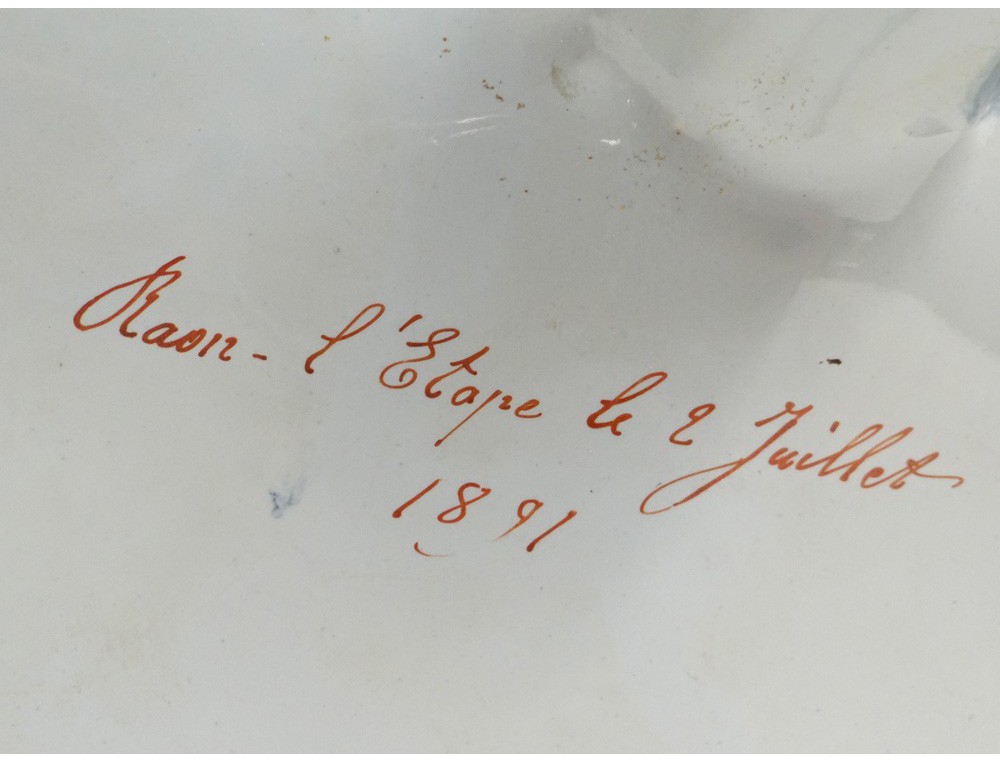 Raon-l'Etape le 2 Juillet
1891